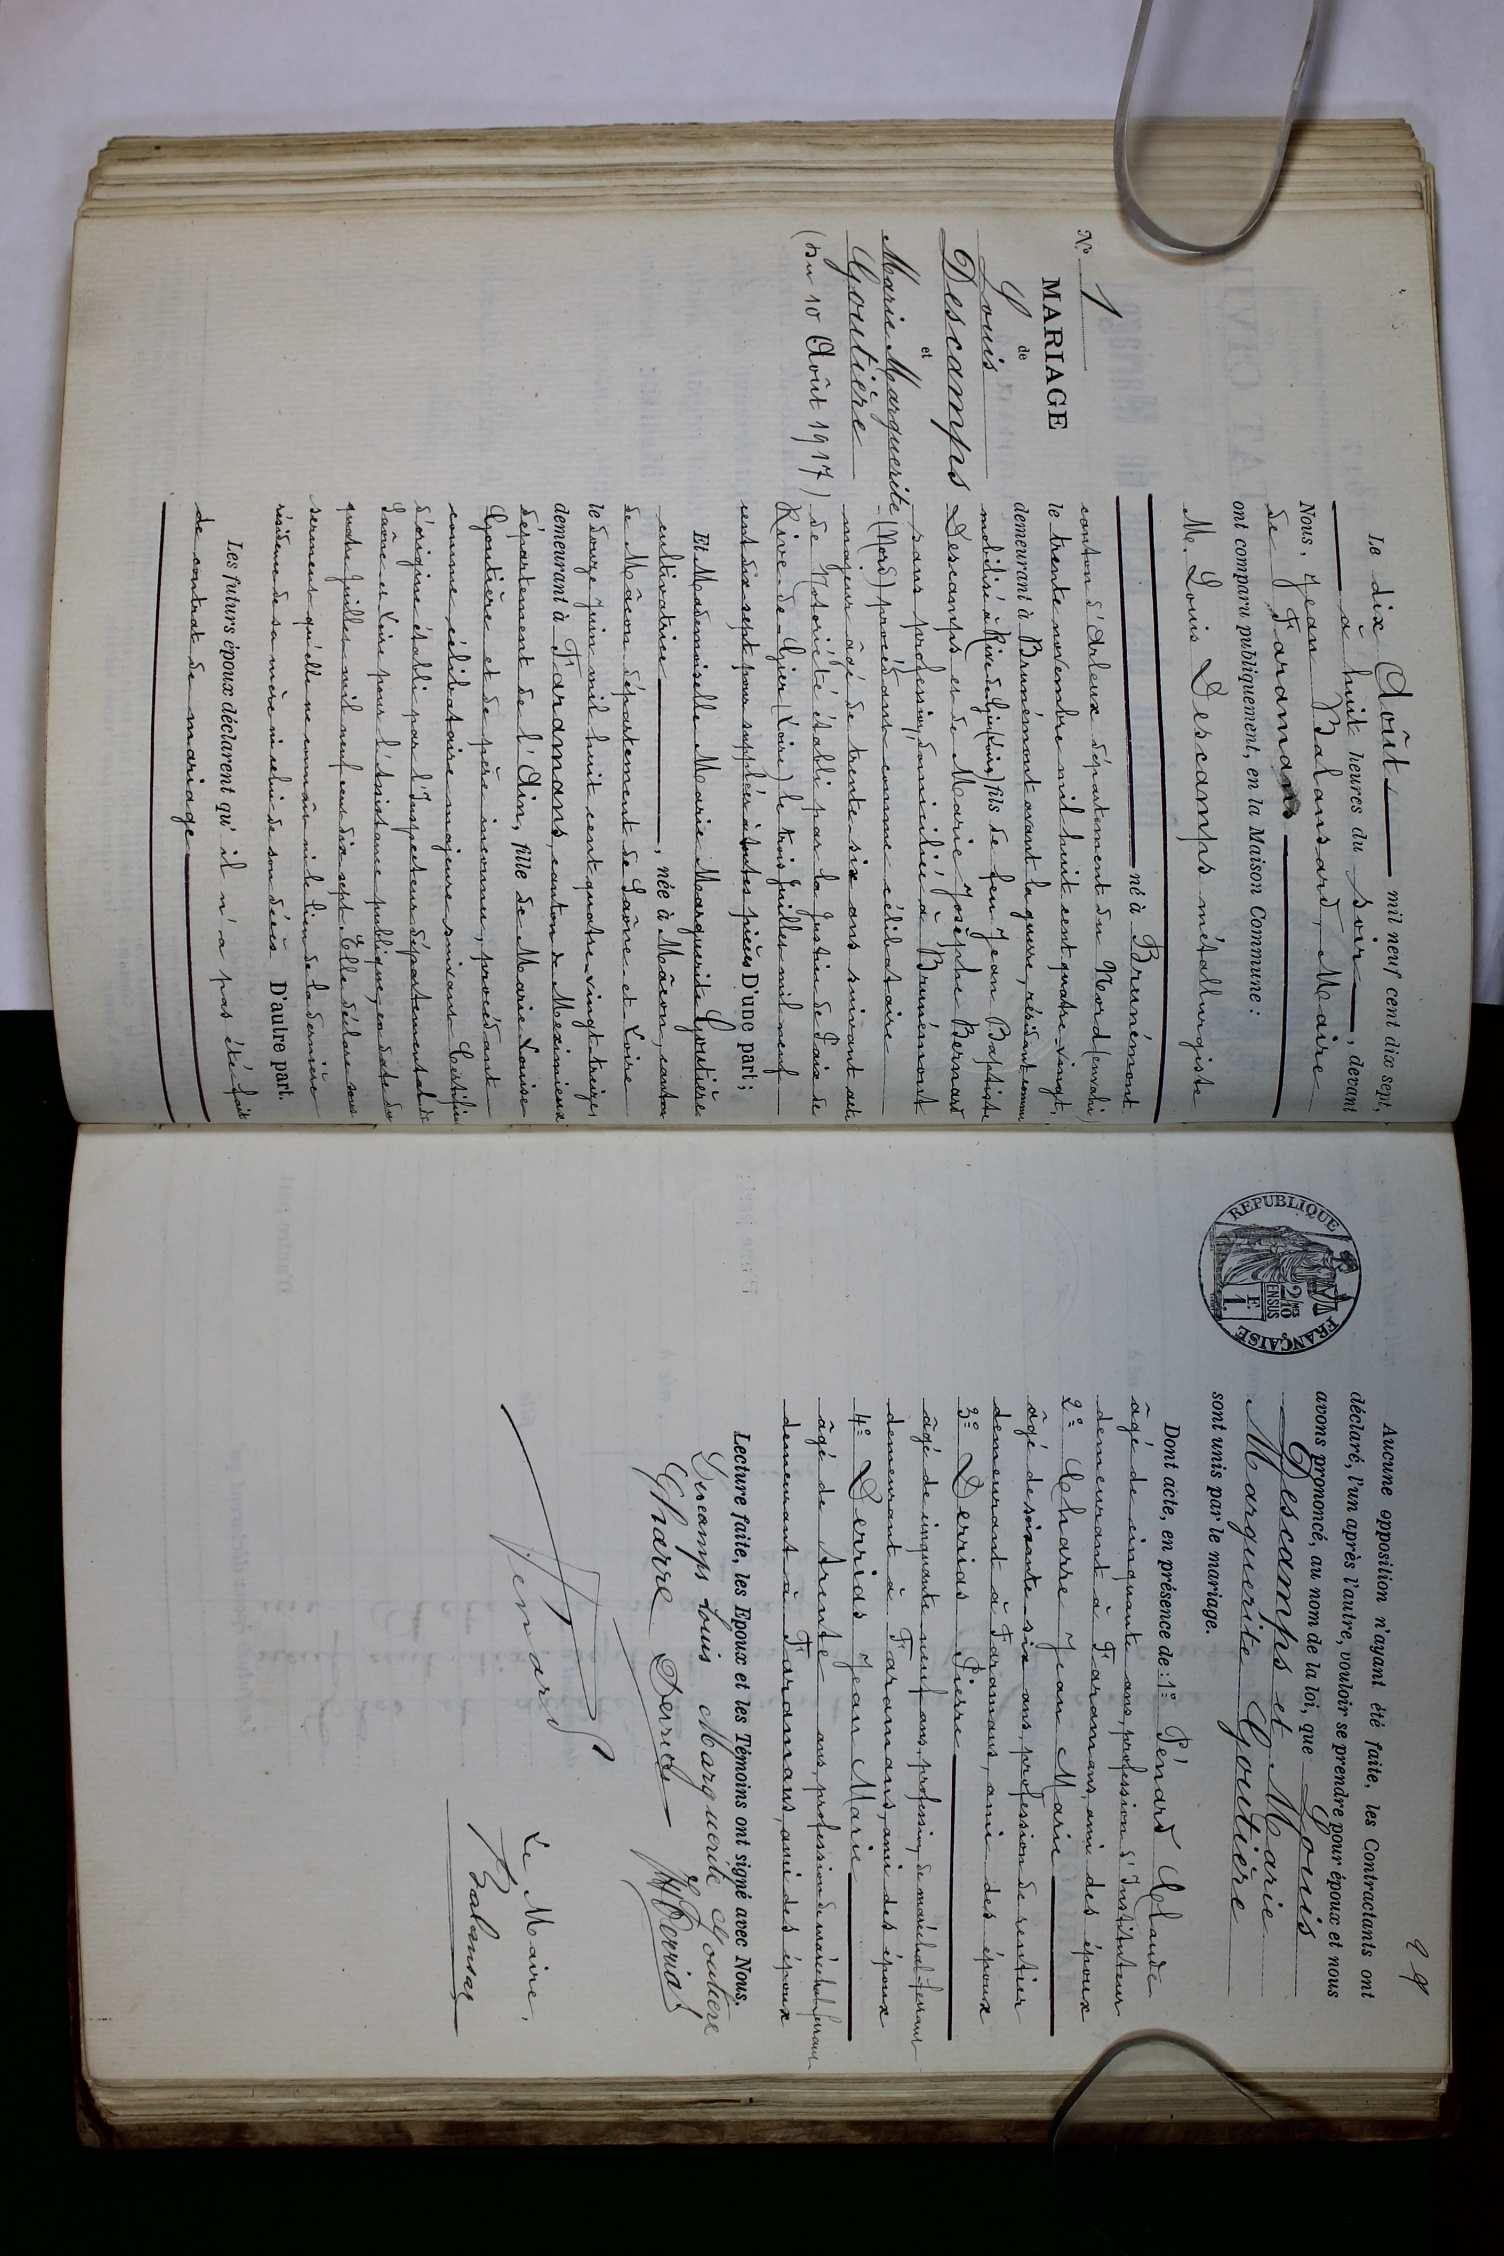 N° 1
MARIAGE
de
Louis
Descamps
et
Marie Marguerite
Goutière
(Du 10 Août 1917)
Le dix Août mil neuf cent dix sept,
à huit heures du soir, devant
Nous, Jean Balansard, Maire
de Faramans
ont comparu publiquement, en la Maison Commune :
M. Louis Descamps métallurgiste
né à Brunémont
canton d'Arleux département du Nord (envahi)
le trente novembre mil huit cent quatre-vingt,
demeurant à Brunémont avant la guerre, résidant comme
mobilisé à Rive de Gier (Loire) fils de feu Jean Baptiste
Descamps et de Marie Josèphe Bernard
sans profession, domiciliée à Brunémont
(Nord) procédant comme célibataire
majeur âgé de trente-six ans suivant acte
de Notoriété établi par la Justice de Paix de
Rive-de-Gier (Loire) le trois juillet mil neuf
cent dix sept pour suppléer à toutes pièces D'une part ;
Et Mademoiselle Marie Marguerite Goutière
cultivatrice, née à Mâcon, canton
de Mâcon département de Saône-et-Loire
le douze Juin mil huit cent quatre-vingt-treize,
demeurant à Faramans, canton de Meximieux
département de l'Ain, fille de Marie Louise
Goutière et de père inconnu, procédant
comme célibataire majeure, suivant Certificat
d'origine établi par l'Inspecteur départemental de
Saône et Loire pour l'Assistance publique, en date du
quatre juillet mil neuf cent dix sept. Elle déclare sous
serment qu'elle ne connaît ni le lieu de la dernière
résidence de sa mère ni celui de son décès D'autre part.
Les futurs époux déclarent qu'il n'a pas été fait
de contrat de mariage
99
REPUBLIQUE FRANÇAISE
2/10 MES
EN SUS
E.
1.
Aucune opposition n'ayant été faite, les Contractants ont
déclaré, l'un après l'autre, vouloir se prendre pour époux et nous
avons prononcé, au nom de la loi, que Louis
Descamps et Marie
Marguerite Goutière
sont unis par le mariage.
Dont acte, en présence de : 1° Pénard Claude
âgé de cinquante ans, profession d'Instituteur
demeurant à Faramans, ami des époux
2° Charre Jean Marie
âgé de soixante-six ans, profession de rentier
demeurant à Faramans, ami des époux
3° Derrias Pierre
âgé de cinquante neuf ans, profession de maréchal-ferrant
demeurant à Faramans, ami des époux
4° Derrias Jean Marie
âgé de trente ans, profession de maréchal ferrant
demeurant à Faramans, ami des époux
Lecture faite, les Epoux et les Témoins ont signé avec Nous.
Descamps Louis Marguerite Goutière
Charre Derrias
Penard
Le Maire,
Balansard